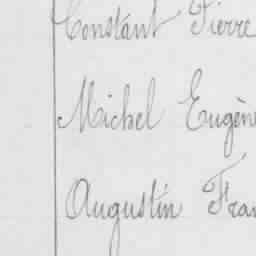 Constant Pierre
Michel Eugène
Augustin Fran